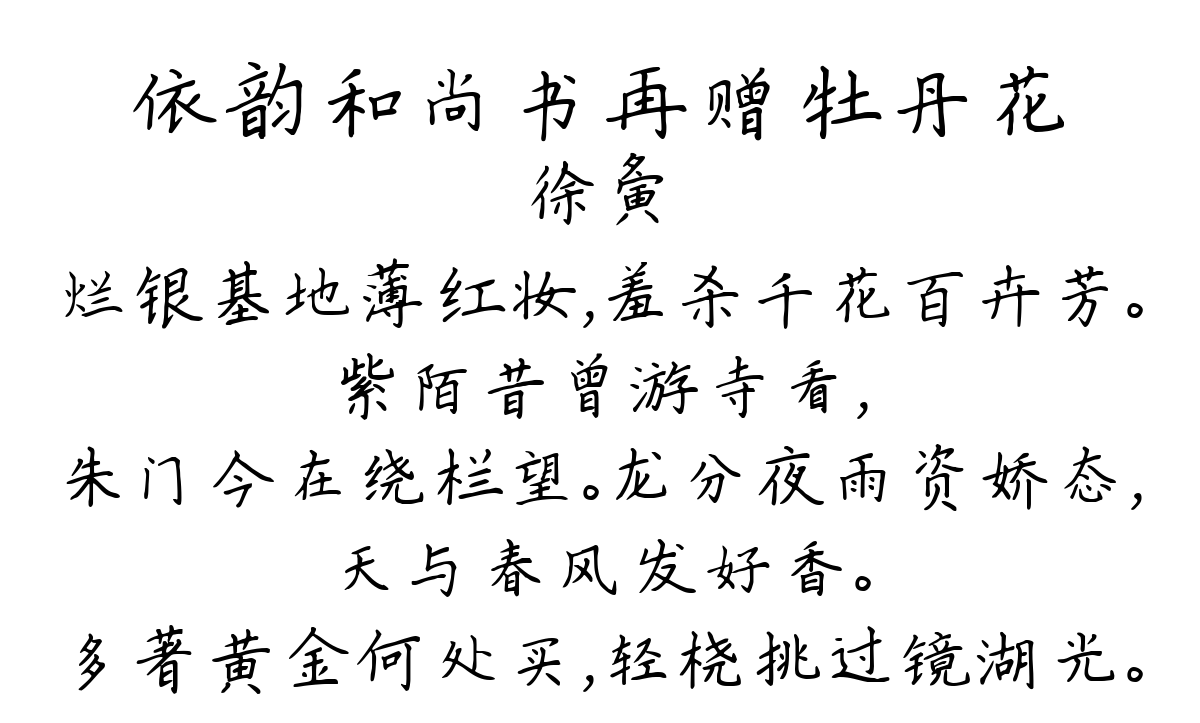 依韵和尚书再赠牡丹花
徐夤
烂银基地薄红妆,羞杀千花百卉芳。
紫陌昔曾游寺看,
朱门今在绕栏望。龙分夜雨资娇态,
天与春风发好香。
多著黄金何处买,轻桡挑过镜湖光。